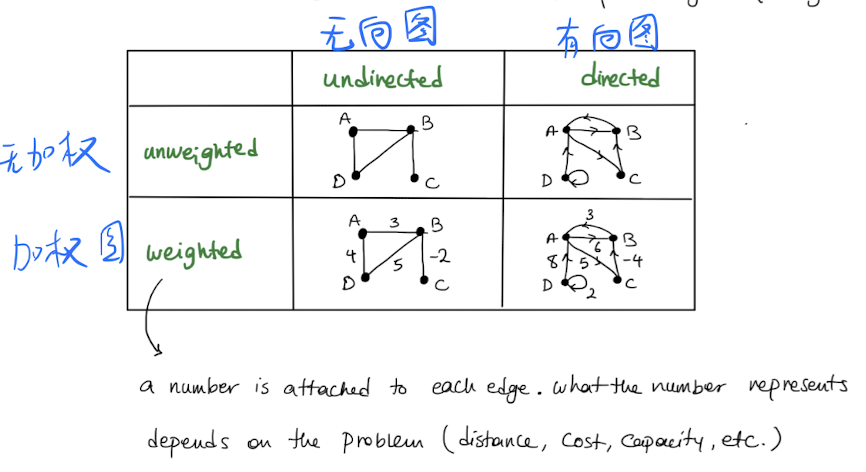 无向图 有向图
undirected directed
无加权 unweighted
A B D C
A B D C
加权图 weighted
A 3 B 4 5 -2 D C
3 A B 6 8 5 -4 D 2 C
a number is attached to each edge. what the number represents
depends on the problem (distance, cost, capacity, etc.)